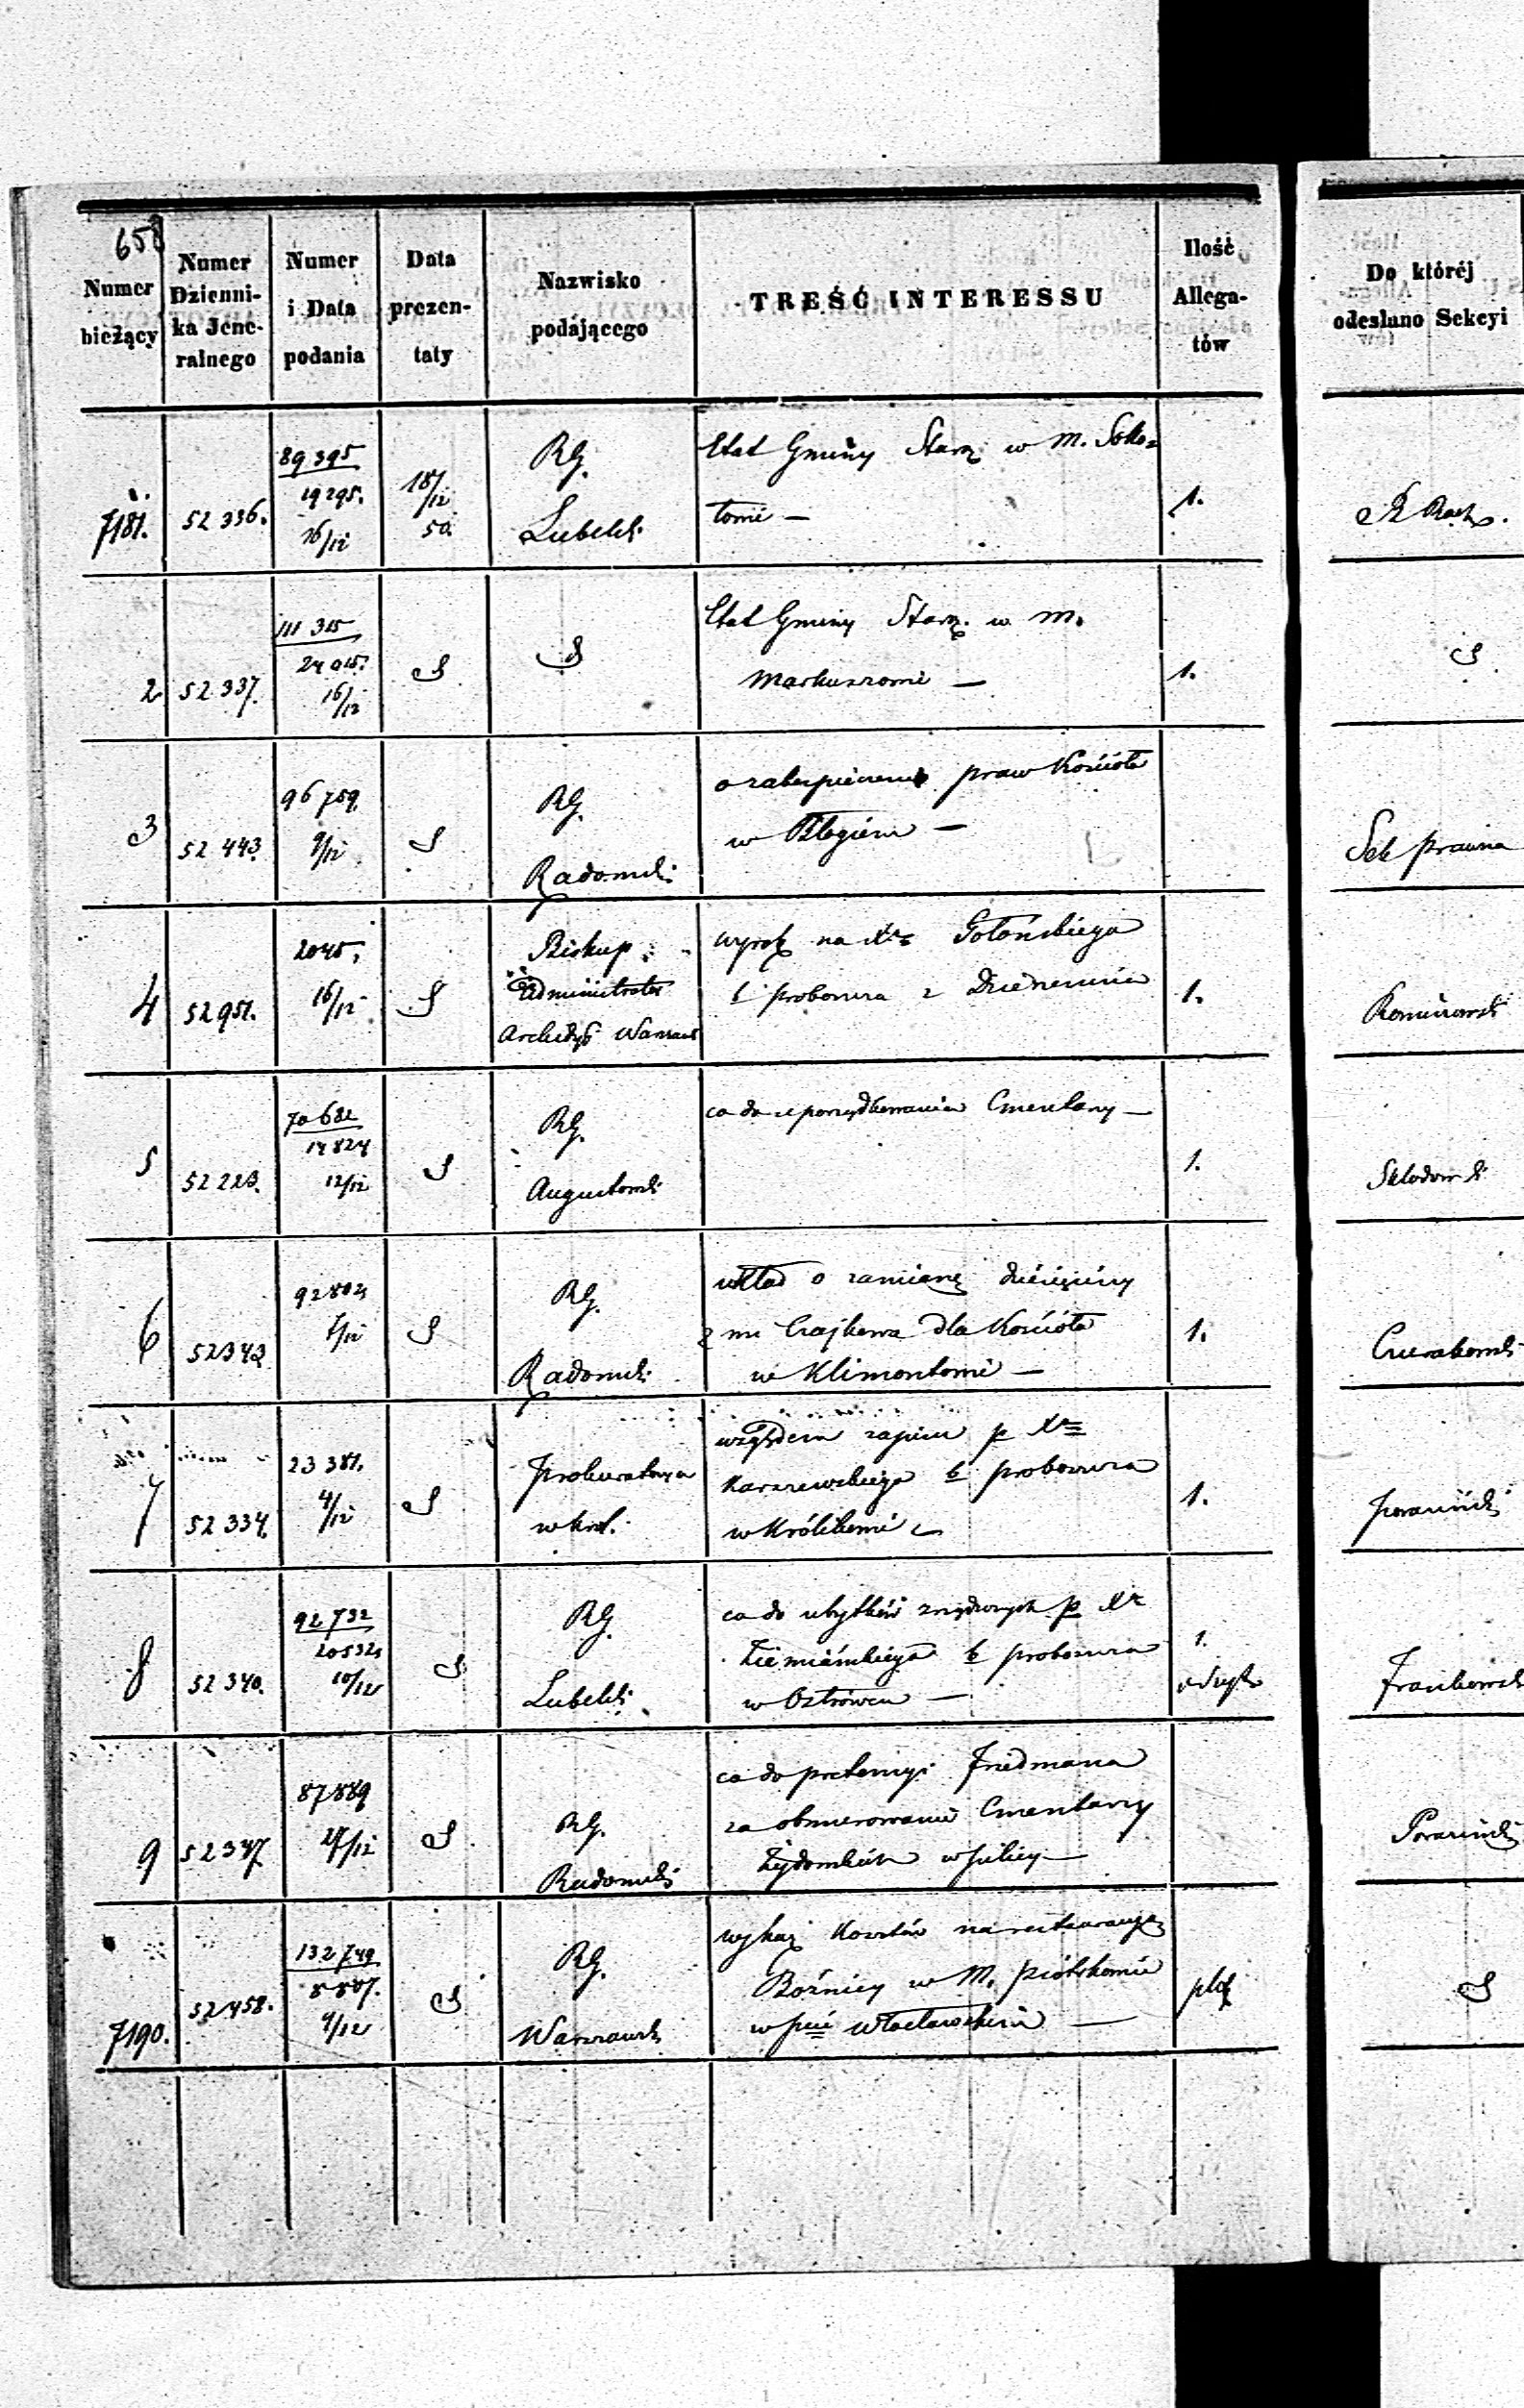 658
Numer bieżący
Numer Dzienni-ka Jene-ralnego
Numer i Data podania
Data prezen-taty
Nazwisko podającego
TREŚĆ INTERESSU
Ilość Allega-tów
Do któréj odesłano Sekcyi
7181.
52 336.
89 395
19 295.
16/12
18/12
50.
RG.
Lubelsk.
Etat Gminy Starz. w M. Soko=
łowie —
1.
2
52 337.
111 315
24 015.
16/12
Etat Gminy Starz. w M.
Markuszowie —
1.
3
52 443.
96 759.
9/12
RG.
Radomsk.
o zabezpieczenie praw Kościoła
w —
Sek prawna
4
52 951.
2045.
16/12
Biskup
Administrator
Archidyec Warszaw
wyrok na Xa Gołońskiego
b proboszcza z
1.
5
52 223.
70 682
14 824
12/12
RG.
Augustowsk
co do uporządkowania Cmentarzy —
1.
Skłodowsk
6
52343
92802
7/12
RG.
Radomsk.
układ o zamianę dziesięciny
z wsi Czajkowa dla Kościoła
w Klimontowie —
1.
7
52 334.
23 381.
4/12
Prokuratorya
w Król.
względem zapisu p Xa
Karszewskiego b proboszcza
w Królikowie
1.
8
52 340.
92 732
20532
10/12
RG.
Lubelsk.
co do ubytków zrządzonych p Xa
Ziemiańskiego b proboszcza
w Ostrówku —
1.
Frankowsk
9
52347
87889
27/12
RG.
Radomsk
co do pretensyi Friedmana
za obmurowanie Cmentarzy
Żydowskich w —
7190.
52 458.
132 749
8 807.
4/12
RG.
Warszawsk
wykaz kosztów na restauracyą
Bóźnicy w M. Piotrkowie
w pcie Włocławskim —
plik